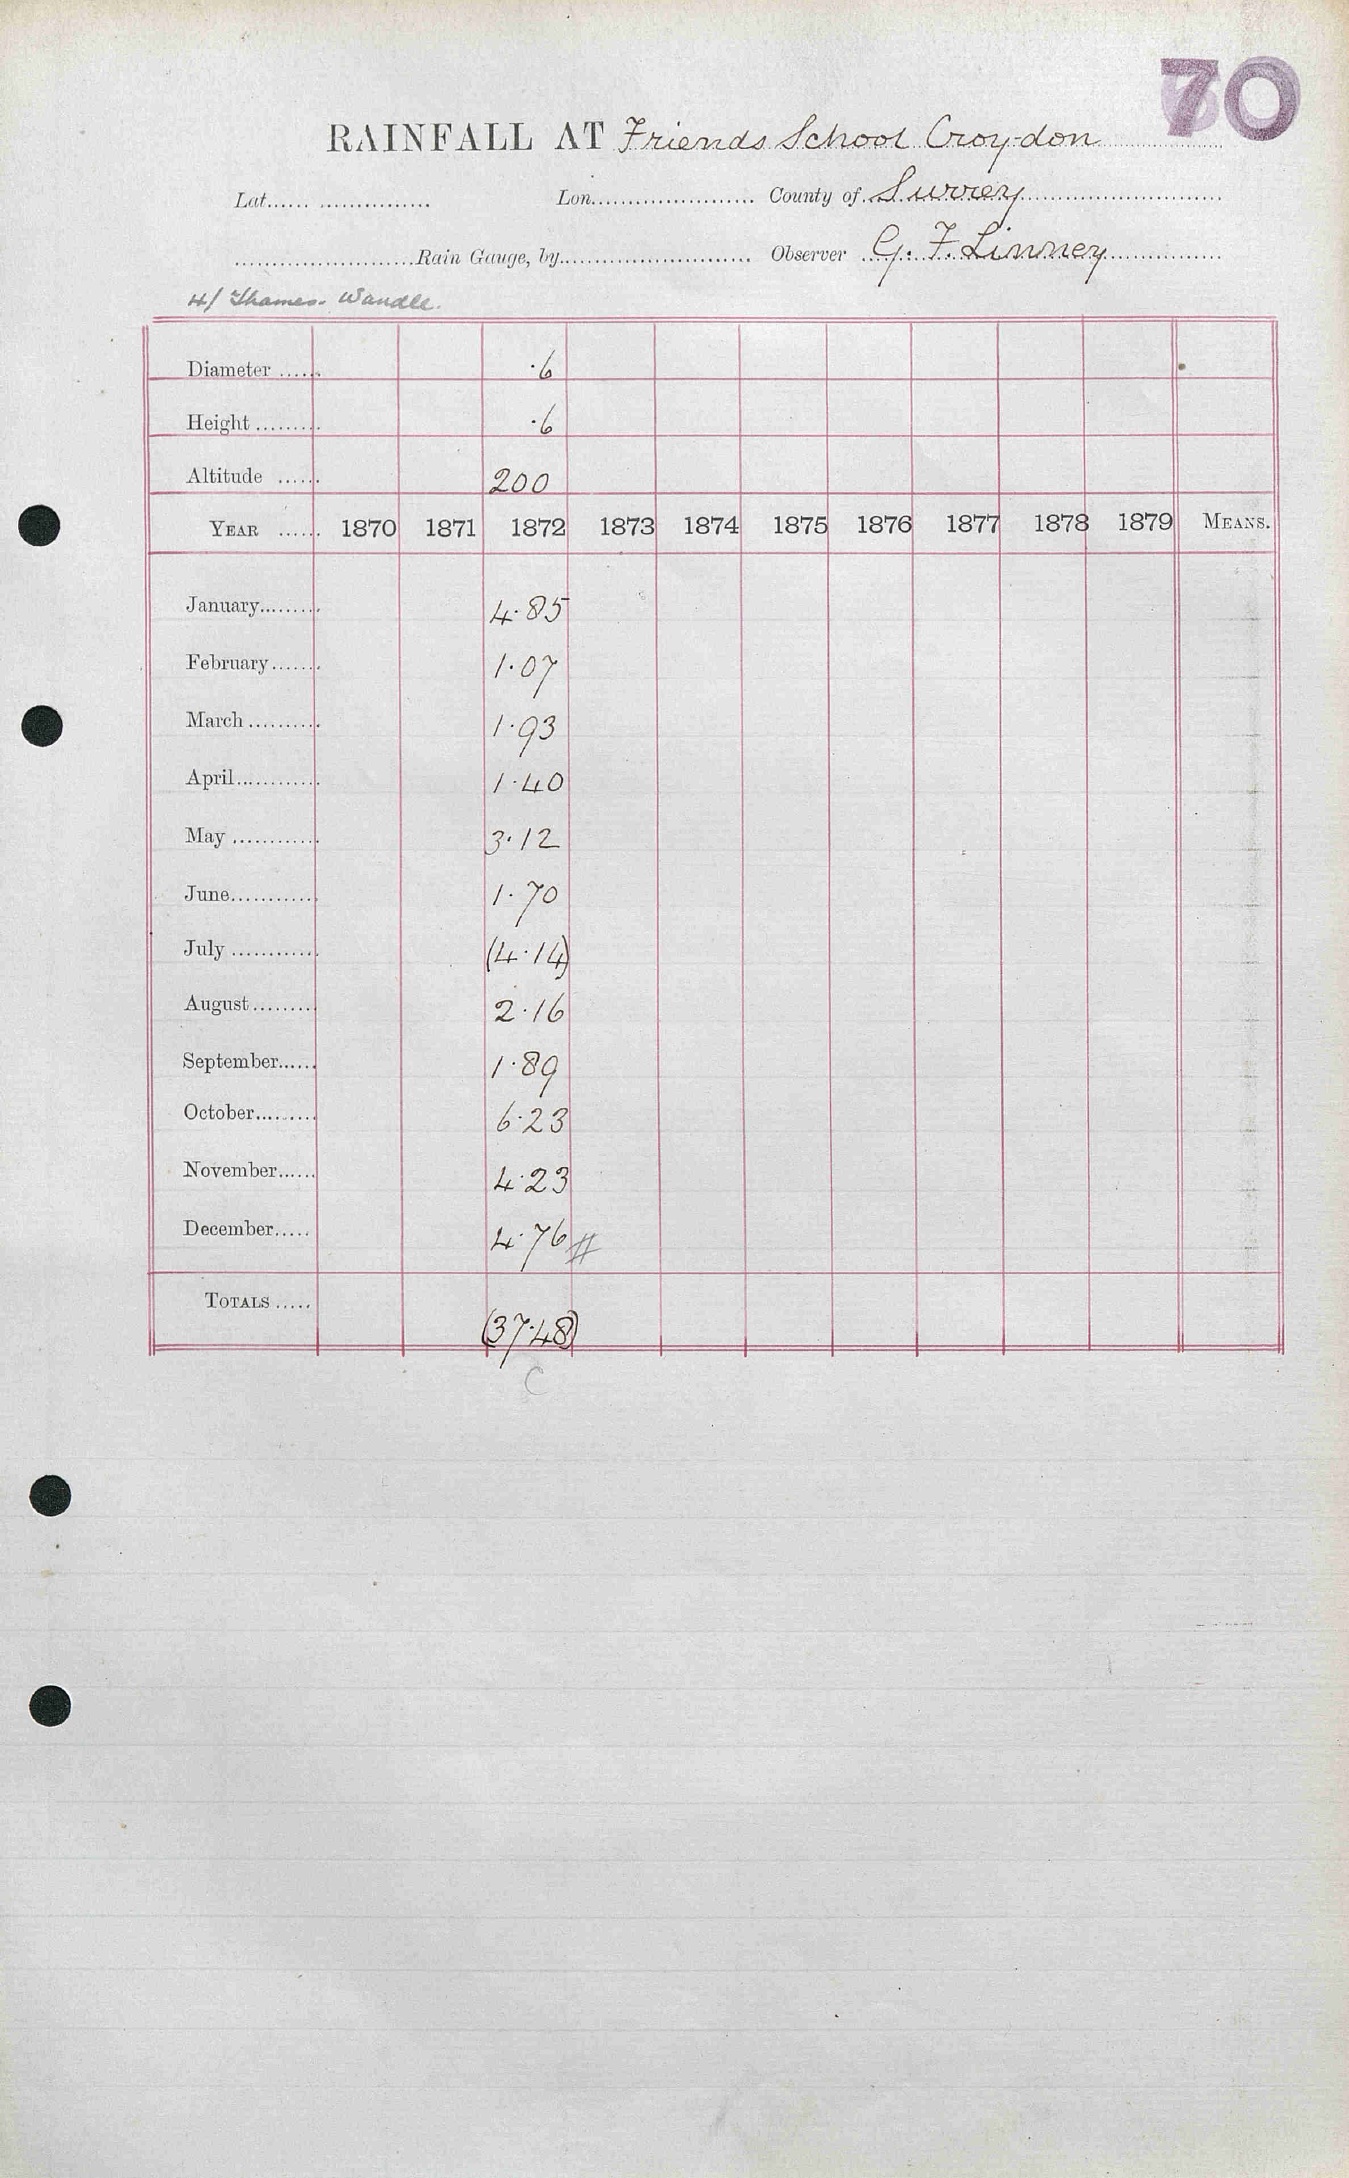 70
RAINFALL AT Friends School Croydon
Lat. Lon. County of Surrey
Rain Gauge, by Observer G. F. Linney
4/ Thames. Wandle.
Diameter ...... ·6
Height ......... ·6
Altitude ...... 200
YEAR ...... 1870 1871 1872 1873 1874 1875 1876 1877 1878 1879 MEANS.
January......... 4·85
February....... 1·07
March .......... 1·93
April............ 1·40
May ............ 3·12
June............ 1·70
July ............ (4·14)
August......... 2·16
September...... 1·89
October......... 6·23
November...... 4·23
December..... 4·76 #
TOTALS ..... (37·48)
C